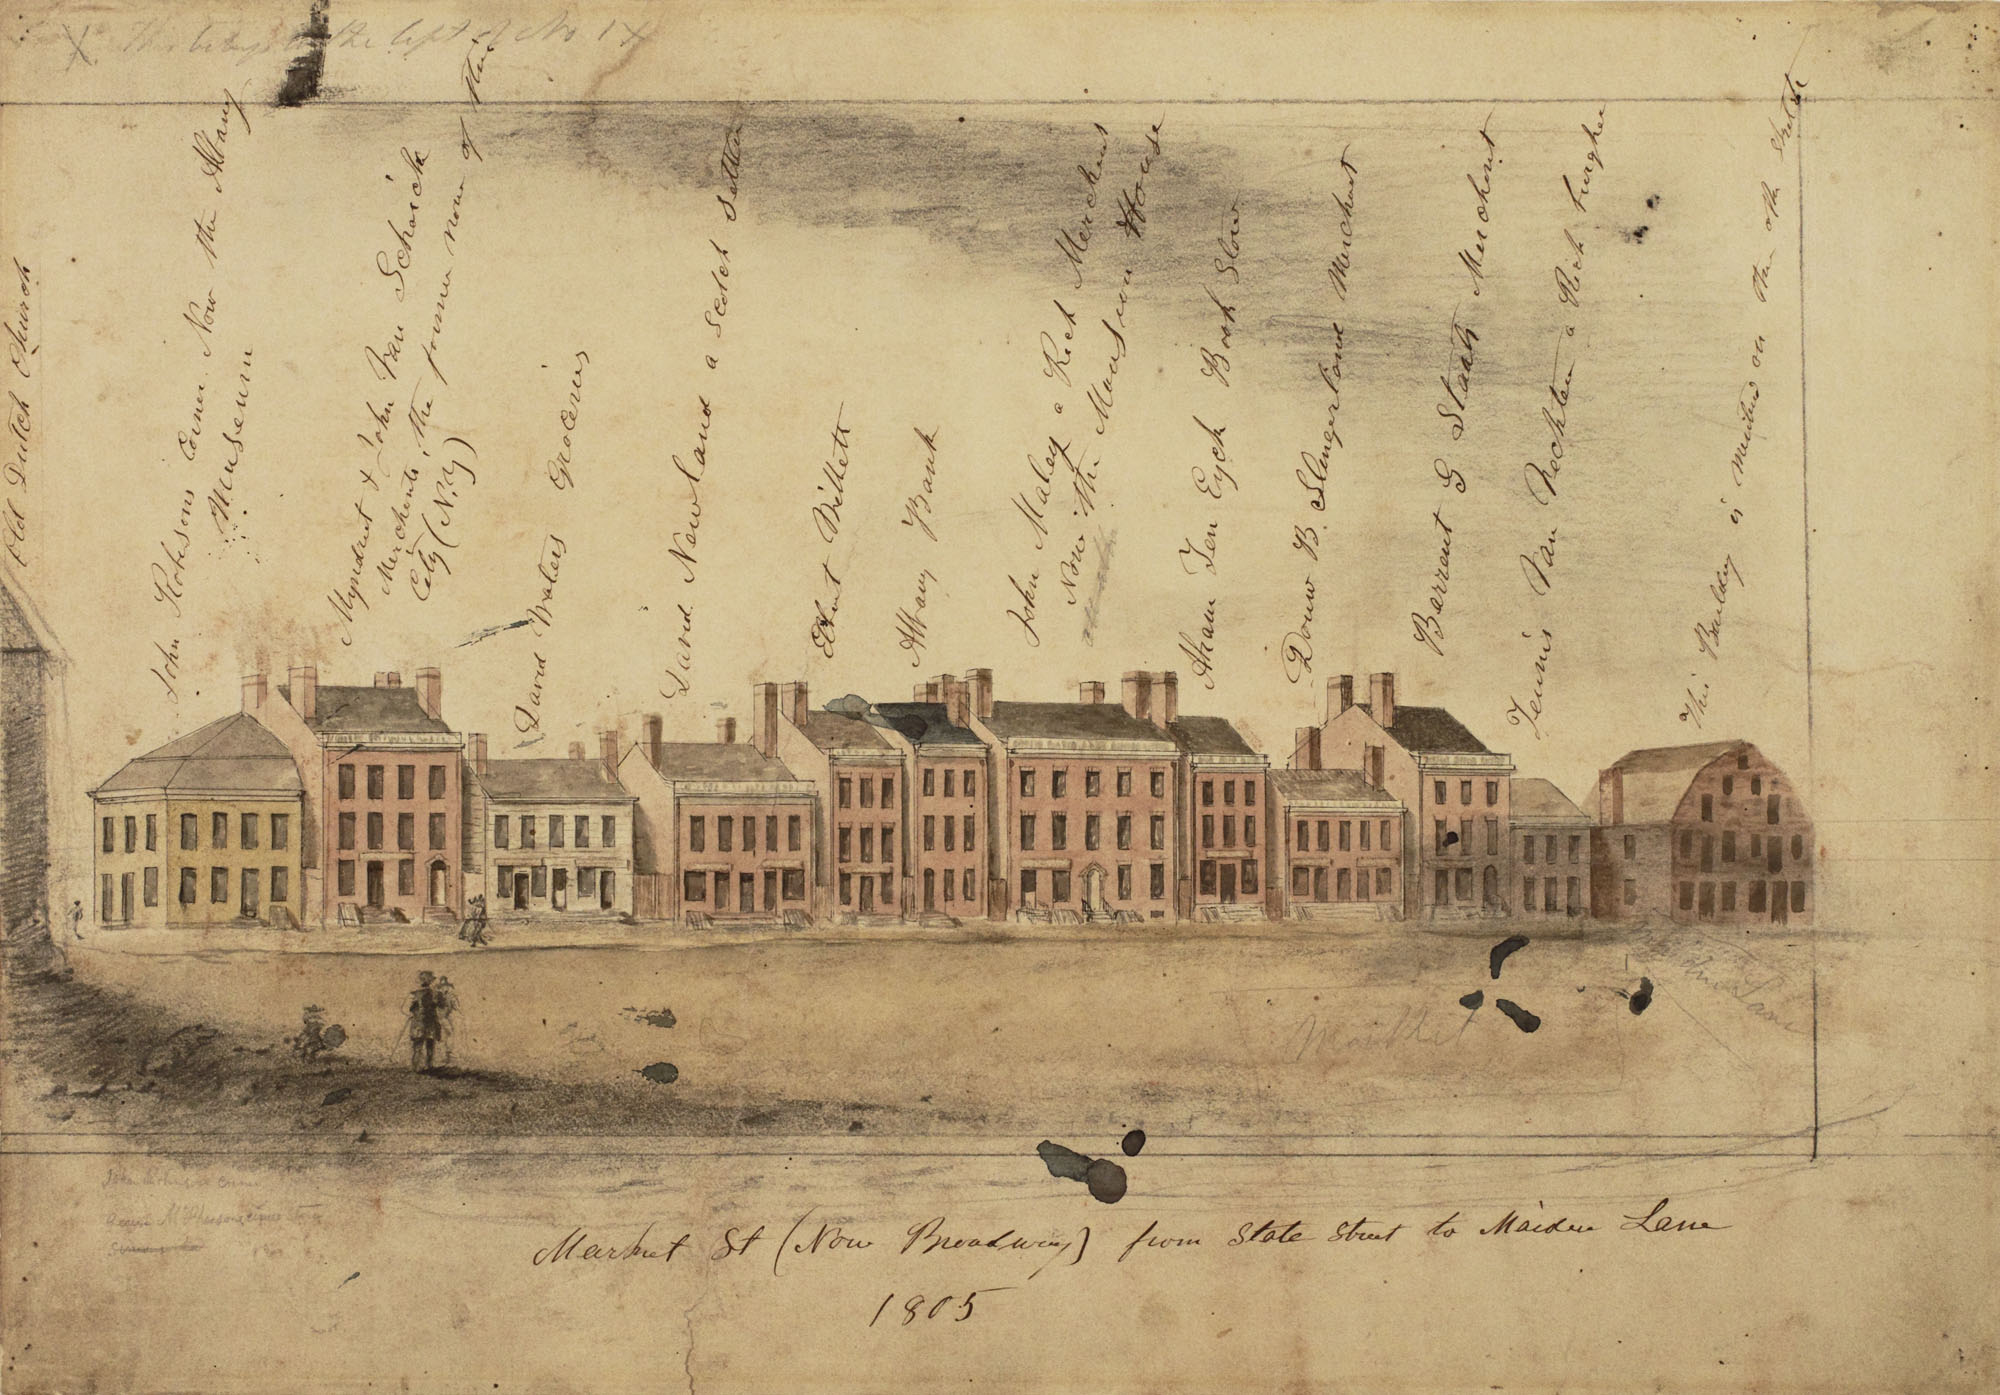 X This belongs to the left of No 1 X
Old Dutch Church
John Robisons Corner. Now the Albany
Museum
Myndert & John Van Schaick
Merchants, the former now of this
City (N.Y)
David Waters Groceries
David Newland a Scotch settler
Elnut Billett
Albany Bank
John Maley a Rich Merchant
Now the Mansion House
Abam Ten Eyck Book Store
Douw B. Slingerland Merchant
Barrent G Staats Merchant
Teunis Van Vechten a Rich burgher
This Building is mention on the othr Sketch
Maiden Lane
Market
Market St (Now Broadway) from State Street to Maiden Lane
1805